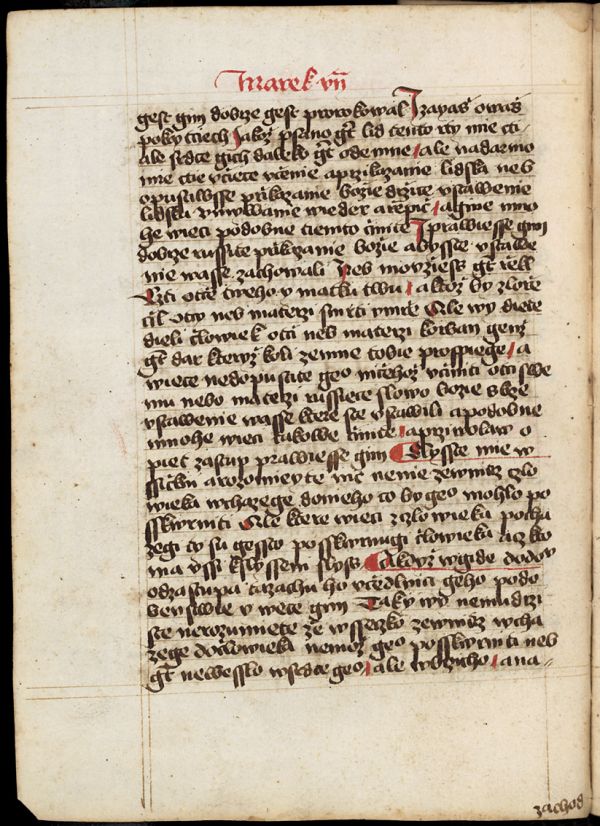 Marek vii
gest gim dobrze gest prorokowal Izayas o was
pokrytciech Jakoz psano gt lid tento rty mie cti
Ale srdce gich daleko gt ode mne / ale nadarmo
mie ctie vciece vcenie a przikazanie lidska neb
opustiwsse prikazanie bozie drzite vstawenie
lidska vmywanie wieder a
he wieci podobne tiemto cinite I prawiesse gim
dobrze russite prikazanie bozie abysste vstawe
nie wasse zachowali Neb moyziess gt rekl
Czti otce tweho y matku twu / a ktoz by zlorze
cil otcy neb materzi smrti vmrze Ale wy diete
dieli clowiek otci neb materzi korban genz
gt dar kteryz koli ze mne tobie prospiege / a
wiece nedopustite geo niczehoz vciniti otci swe
mu nebo materzi russiece slowo bozie skrze
vstawenie wasse ktere ste vstawili a podobne
mnohe wieci takowe cinite / a przizwolaw o
piet zastup prawiesse gim Slysste mie w
ssickni a rozomieyte nic nenie zewnitrz czlo
wieka wchazege do nieho to by geo mohlo po
sskwrniti Ale ktere wieci z czlowieka pocha
zegi ty su gessto posskwrnugi clowieka acz kto
ma vssi k slyssenie slyss A kdyz wgide do domu
od zastupa tazachu ho vcedlnici geho podo
benstwie y wece gim Taky wy nemudrzi
ste nerozumiete ze wsseczko zewnitrz wcha
zege do clowieka nemoz geo posskwrniti neb
gt newesslo w srdce geo / ale w brzicho / a na
zachod